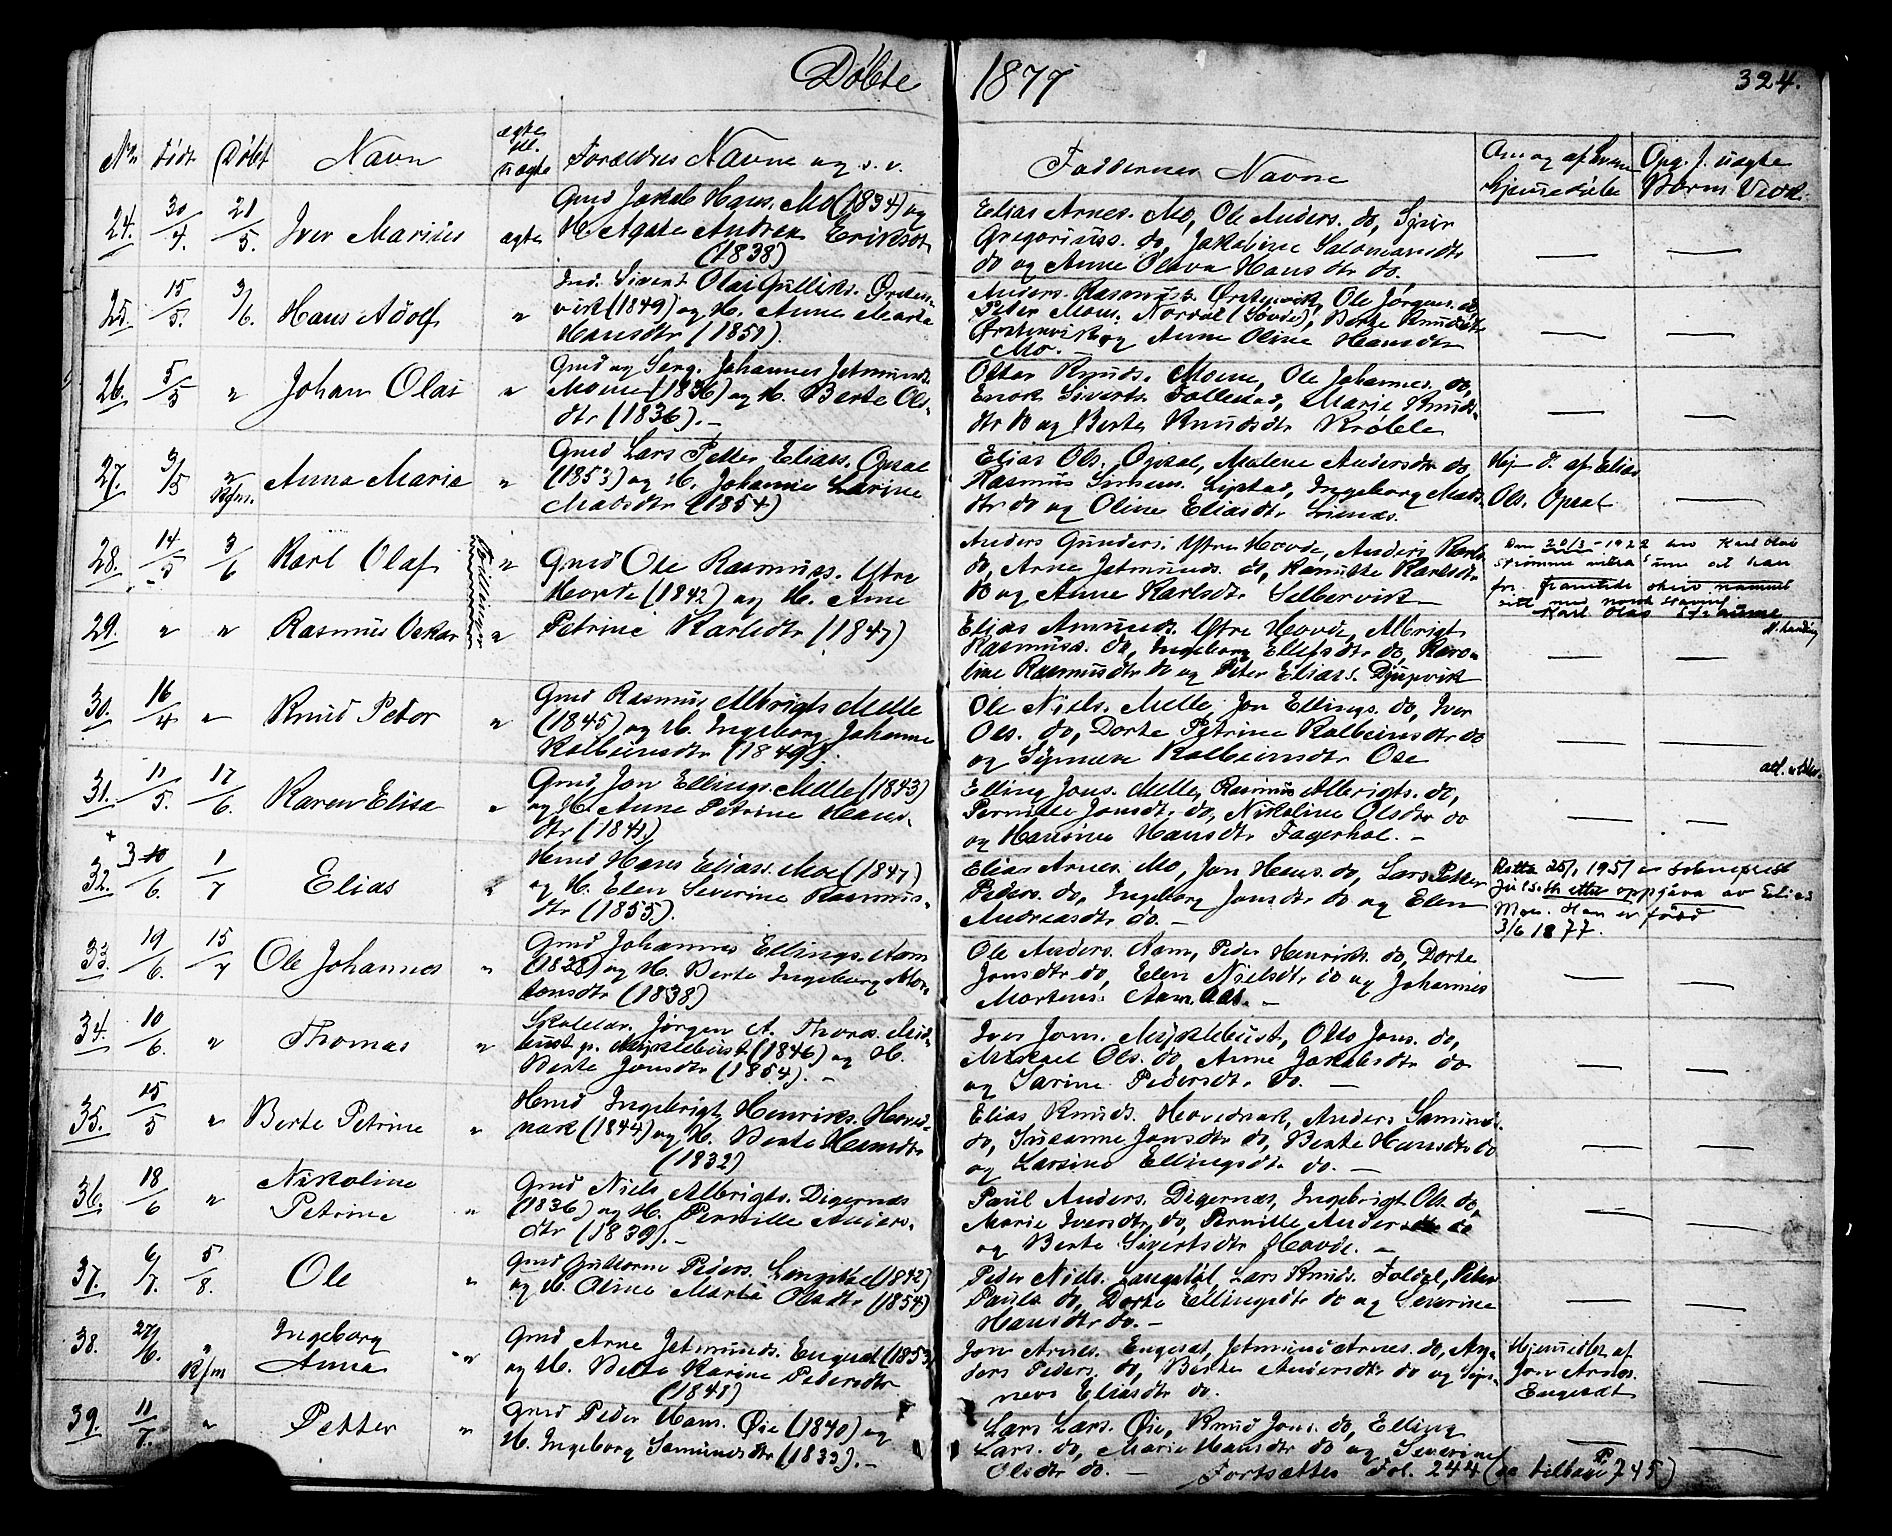 Døbte 1877 324.
No. Født Døbt Navn ægte el. uægte Forældres Navne og s. v. Faddernes Navne Om og af hvem hjemmedøbt Opg. f. uægte Børns Vedk.
24. 30/4. 21/5. Iver Marius ægte
Gmd Jakob Hans. Mo (1834) og
H. Agate Andrea Eriksdtr
(1838)
Elias Arnes. Mo, Ole Anders. do, Sjur
Gregoriuss. do, Jakobine Salomonsdtr
do og Anne Olava Hansdtr do.
25. 15/5. 3/6. Hans Adolf "
Ind. Sivert Olai Gulliks. Ørsten-
vik (1849) og H. Anne Marta
Hansdtr (1851).
Anders Rasmuss. Ørstenvik, Ole Jørgens. do,
Peder Mons. Nordal (Søvde), Berte Knudsdtr
Ørstenvik og Anne Oline Hansdtr
Mo.
26. 5/5 " Johan Olai "
Gmd og Serg. Johannes Jetmunds.
Moene (1836) og H. Berte Ols-
dtr (1836). -
Ottar Knuds. Moene, Ole Johannes. do,
Enok Siverts. Follestad, Marie Knuds-
dtr do og Berte Knudsdtr Krøvle
27. 3/5 " Kfm. Anna Maria "
Gmd Lars Petter Eliass. Opsal
(1853) og H. Johanne Larine
Madsdtr (1854)
Elias Ols. Opsal, Malene Andersdtr do,
Rasmus Simens. Lystad, Ingeborg Mads-
dtr do og Oline Eliasdtr
Hj. d. af Elias
Ols. Opsal
28. 14/5 3/6 Karl Olaf Tvillinger "
Gmd Ole Rasmuss. Ytre
Hovde (1842) og H. Ane
Anders Gunders. Ytre Hovde, Anders Karls.
do, Arne Jetmunds. do, Rasmine Karlsdtr
do og Anne Karlsdtr Selbervik
Den 20/3 - 1922 Karl Olai
at han
for framtida skriv namnet
sitt med norsk stamn
Karl Olas
29. " " Rasmus Oskar "
Petrine Karlsdtr (1847)
Elias Amunds. Ytre Hovde, Albrigt
Rasmuss. do, Ingeborg Ellefsdtr do, Karo-
line Rasmusdtr do og Peter Eliass. Djupvik
30. 16/4 " Knud Petor "
Gmd Rasmus Albrigts. Melle
(1845) og H. Ingeborg Johanne
Kolbeinsdtr (1849).
Ole Niels. Melle, Jon Ellings. do, Iver
Ols. do, Dorte Petrine Kolbeinsdtr do
og Synneve Kolbeinsdtr Ose
31. 11/5. 17/6. Karen Elisa "
Gmd Jon Ellings. Melle (1843)
og H. Anne Petrine Hans-
dtr (1841)
Elling Jons. Melle, Rasmus Albrigts. do,
Pernille Jonsdtr do, Nikoline Olsdtr do
og Hansine Hansdtr Fagerhol. -
+
32. 3 10/6. 1/7 Elias "
Hmd Hans Eliass. Moe (1847)
og H. Elen Severine Rasmus-
dtr (1855).
Elias Arnes. Mo, Jon Hans. do, Lars Petter
Peders. do, Ingeborg Jonsdtr do og Elen
Andreasdtr do. -
Retta 25/, 1951 av sokneprest
etter oppgåva av Elias
Moe. Han er född
3/6 1877.
33. 19/6. 15/7 Ole Johannes "
Gmd Johannes Ellings. Aam
(1828) og H. Berte Ingeborg Mor-
tensdtr (1838)
Ole Anders. Aam, Peder Henriks. do, Dorte
Jonsdtr do, Elen Nielsdtr do og Johannes
Mortens. Aam. -
34. 10/6. " Thomas "
Skolelær. Jørgen A. Thoras. Mid-
bust p. Myklebust (1846) og H.
Berte Jonsdtr (1854). -
Iver Jons. Myklebust, Otto Jons. do,
Mikael Ols. do, Anne Jakobsdtr do
og Sarine Pedersdtr do. -
35. 15/5 " Berte Petrine "
Hmd Ingebrigt Henriks. Hoved-
nak (1844) og H. Berte Hansdtr
(1832)
Elias Knuds. Hovednak, Anders Samunds.
do, Susanne Jonsdtr do, Berte Hansdtr do
og Larsine Ellingsdtr do. -
36. 18/6 " Nikoline
Petrine "
Gmd Niels Albrigts. Digernæs
(1836) og H. Pernille Anders-
dtr (1839). -
Paul Anders. Digernæs, Ingebrigt Ols. do,
Marie Iversdtr do, Pernille Andersdtr do
og Berte Sivertsdtr Hovde. -
37. 6/7. 5/8. Ole "
Gmd Guttorm Peders. Langstøl (1842)
og H. Oline Marta Olsdtr (1854)
Peder Niels. Langstøl, Lars Knuds. Foldal, Peter
Pauls. do, Dorte Ellingsdtr do og Severine
Hansdtr do. -
38. 27/6. " Kfm Ingeborg
Anna "
Gmd Arne Jetmunds. Engeset (1853)
og H. Berte Karine Pedersdtr
(1848)
Jon Arnes. Engeset, Jetmund Arnes. do, An-
ders Peders. do, Berte Andersdtr do og Syn-
neve Eliasdtr do.
Hjemmedøbt af
Jon Arnes.
Engeset
39. 11/7. " Petter "
Gmd Peder Hans. Øie (1840) og
H. Ingeborg Samundsdtr (1833). -
Lars Lars. Øie, Knud Jons. do, Elling
Lars. do, Marie Hansdtr do og Severine
Olsdtr do. - Fortsættes Fol. 244 (se tilbage P. 245)